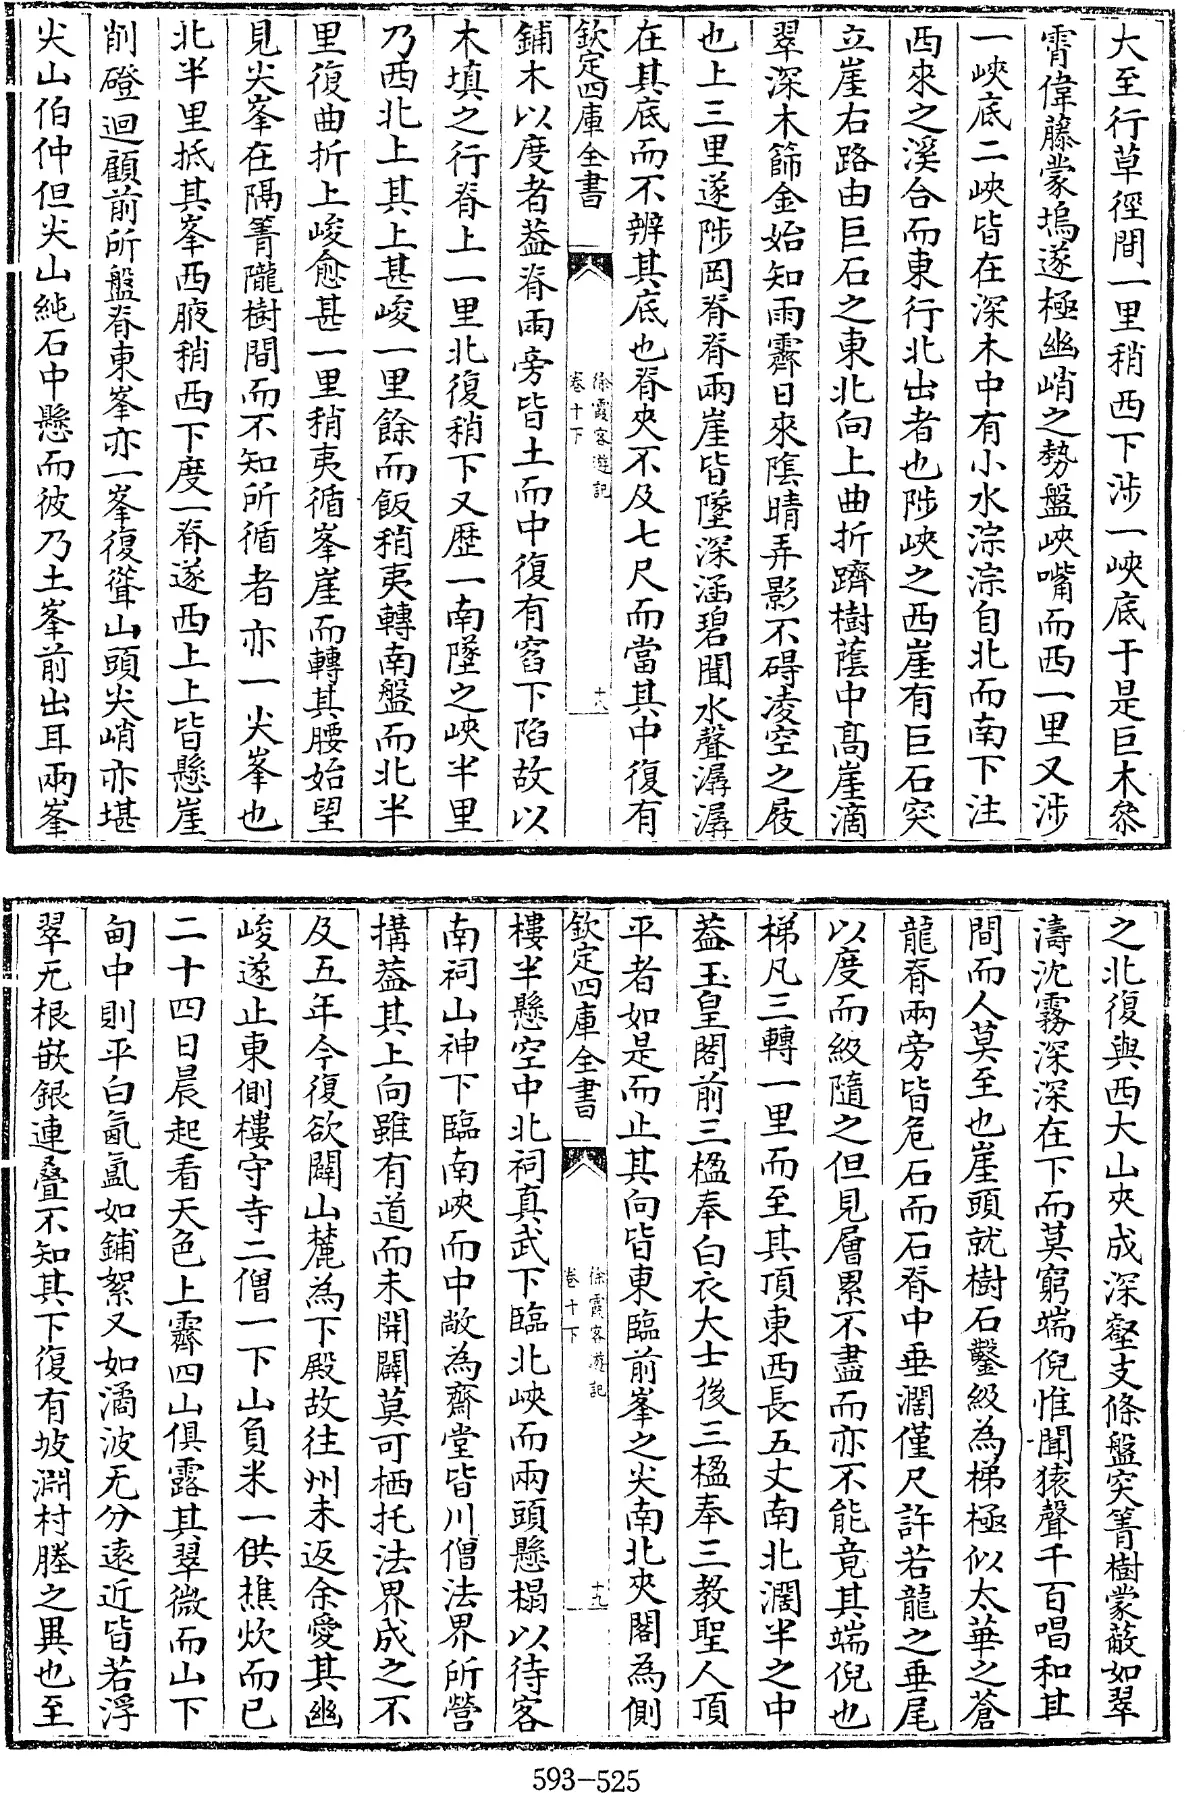 大至行草徑間一里稍西下涉一峽底于是巨木叅
霄偉藤蒙塢遂極幽峭之勢盤峽嘴而西一里又涉
一峽底二峽皆在深木中有小水淙淙自北而南下注
西來之溪合而東行北出者也陟峽之西崖有巨石突
立崖右路由巨石之東北向上曲折躋樹蔭中髙崖滴
翠深木篩金始知雨霽日來陰晴弄影不碍凌空之屐
也上三里遂陟岡脊脊兩崖皆墜深涵碧聞水聲潺潺
在其底而不辨其底也脊夾不及七尺而當其中復有
欽定四庫全書
徐霞客遊記
卷十下
十八
鋪木以度者葢脊兩旁皆土而中復有窞下陷故以
木填之行脊上一里北復稍下又歴一南墜之峽半里
乃西北上其上甚峻一里餘而飯稍夷轉南盤而北半
里復曲折上峻愈甚一里稍夷循峯崖而轉其腰始望
見尖峯在隔箐隴樹間而不知所循者亦一尖峯也
北半里抵其峯西腋稍西下度一脊遂西上上皆懸崖
削磴迴顧前所盤脊東峯亦一峯復聳山頭尖峭亦堪
尖山伯仲但尖山純石中懸而彼乃土峯前出耳兩峯
之北復與西大山夾成深壑支條盤突箐樹蒙蔽如翠
濤沈霧深深在下而莫窮端倪惟聞猿聲千百唱和其
間而人莫至也崖頭就樹石鑿級為梯極似太華之蒼
龍脊兩旁皆危石而石脊中垂濶僅尺許若龍之垂尾
以度而級隨之但見層累不盡而亦不能竟其端倪也
梯凡三轉一里而至其頂東西長五丈南北濶半之中
葢玉皇閣前三楹奉白衣大士後三楹奉三教聖人頂
平者如是而止其向皆東臨前峯之尖南北夾閣為側
欽定四庫全書
徐霞客遊記
卷十下
十九
樓半懸空中北祠真武下臨北峽而兩頭懸榻以待客
南祠山神下臨南峽而中敞為齋堂皆川僧法界所營
搆葢其上向雖有道而未開闢莫可栖托法界成之不
及五年今復欲闢山麓為下殿故往州未返余愛其幽
峻遂止東側樓守寺二僧一下山負米一供樵炊而已
二十四日晨起看天色上霽四山俱露其翠微而山下
甸中則平白氤氲如鋪絮又如潏波无分遠近皆若浮
翠无根嵌銀連疊不知其下復有坡淵村塍之異也至
593-525